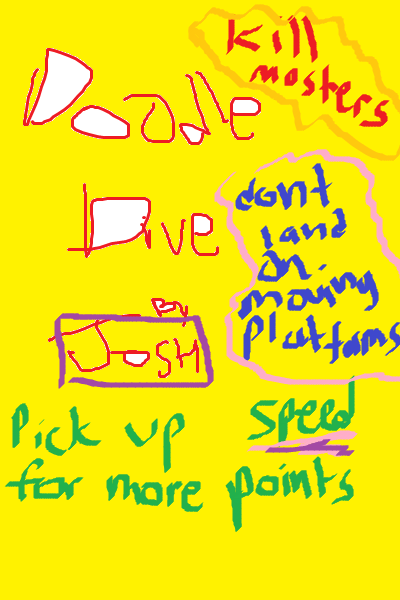 Doodle
Dive
By
JoSH
kill
mosters
dont
land
on
moving
platfoms
Pick up speed
for more points